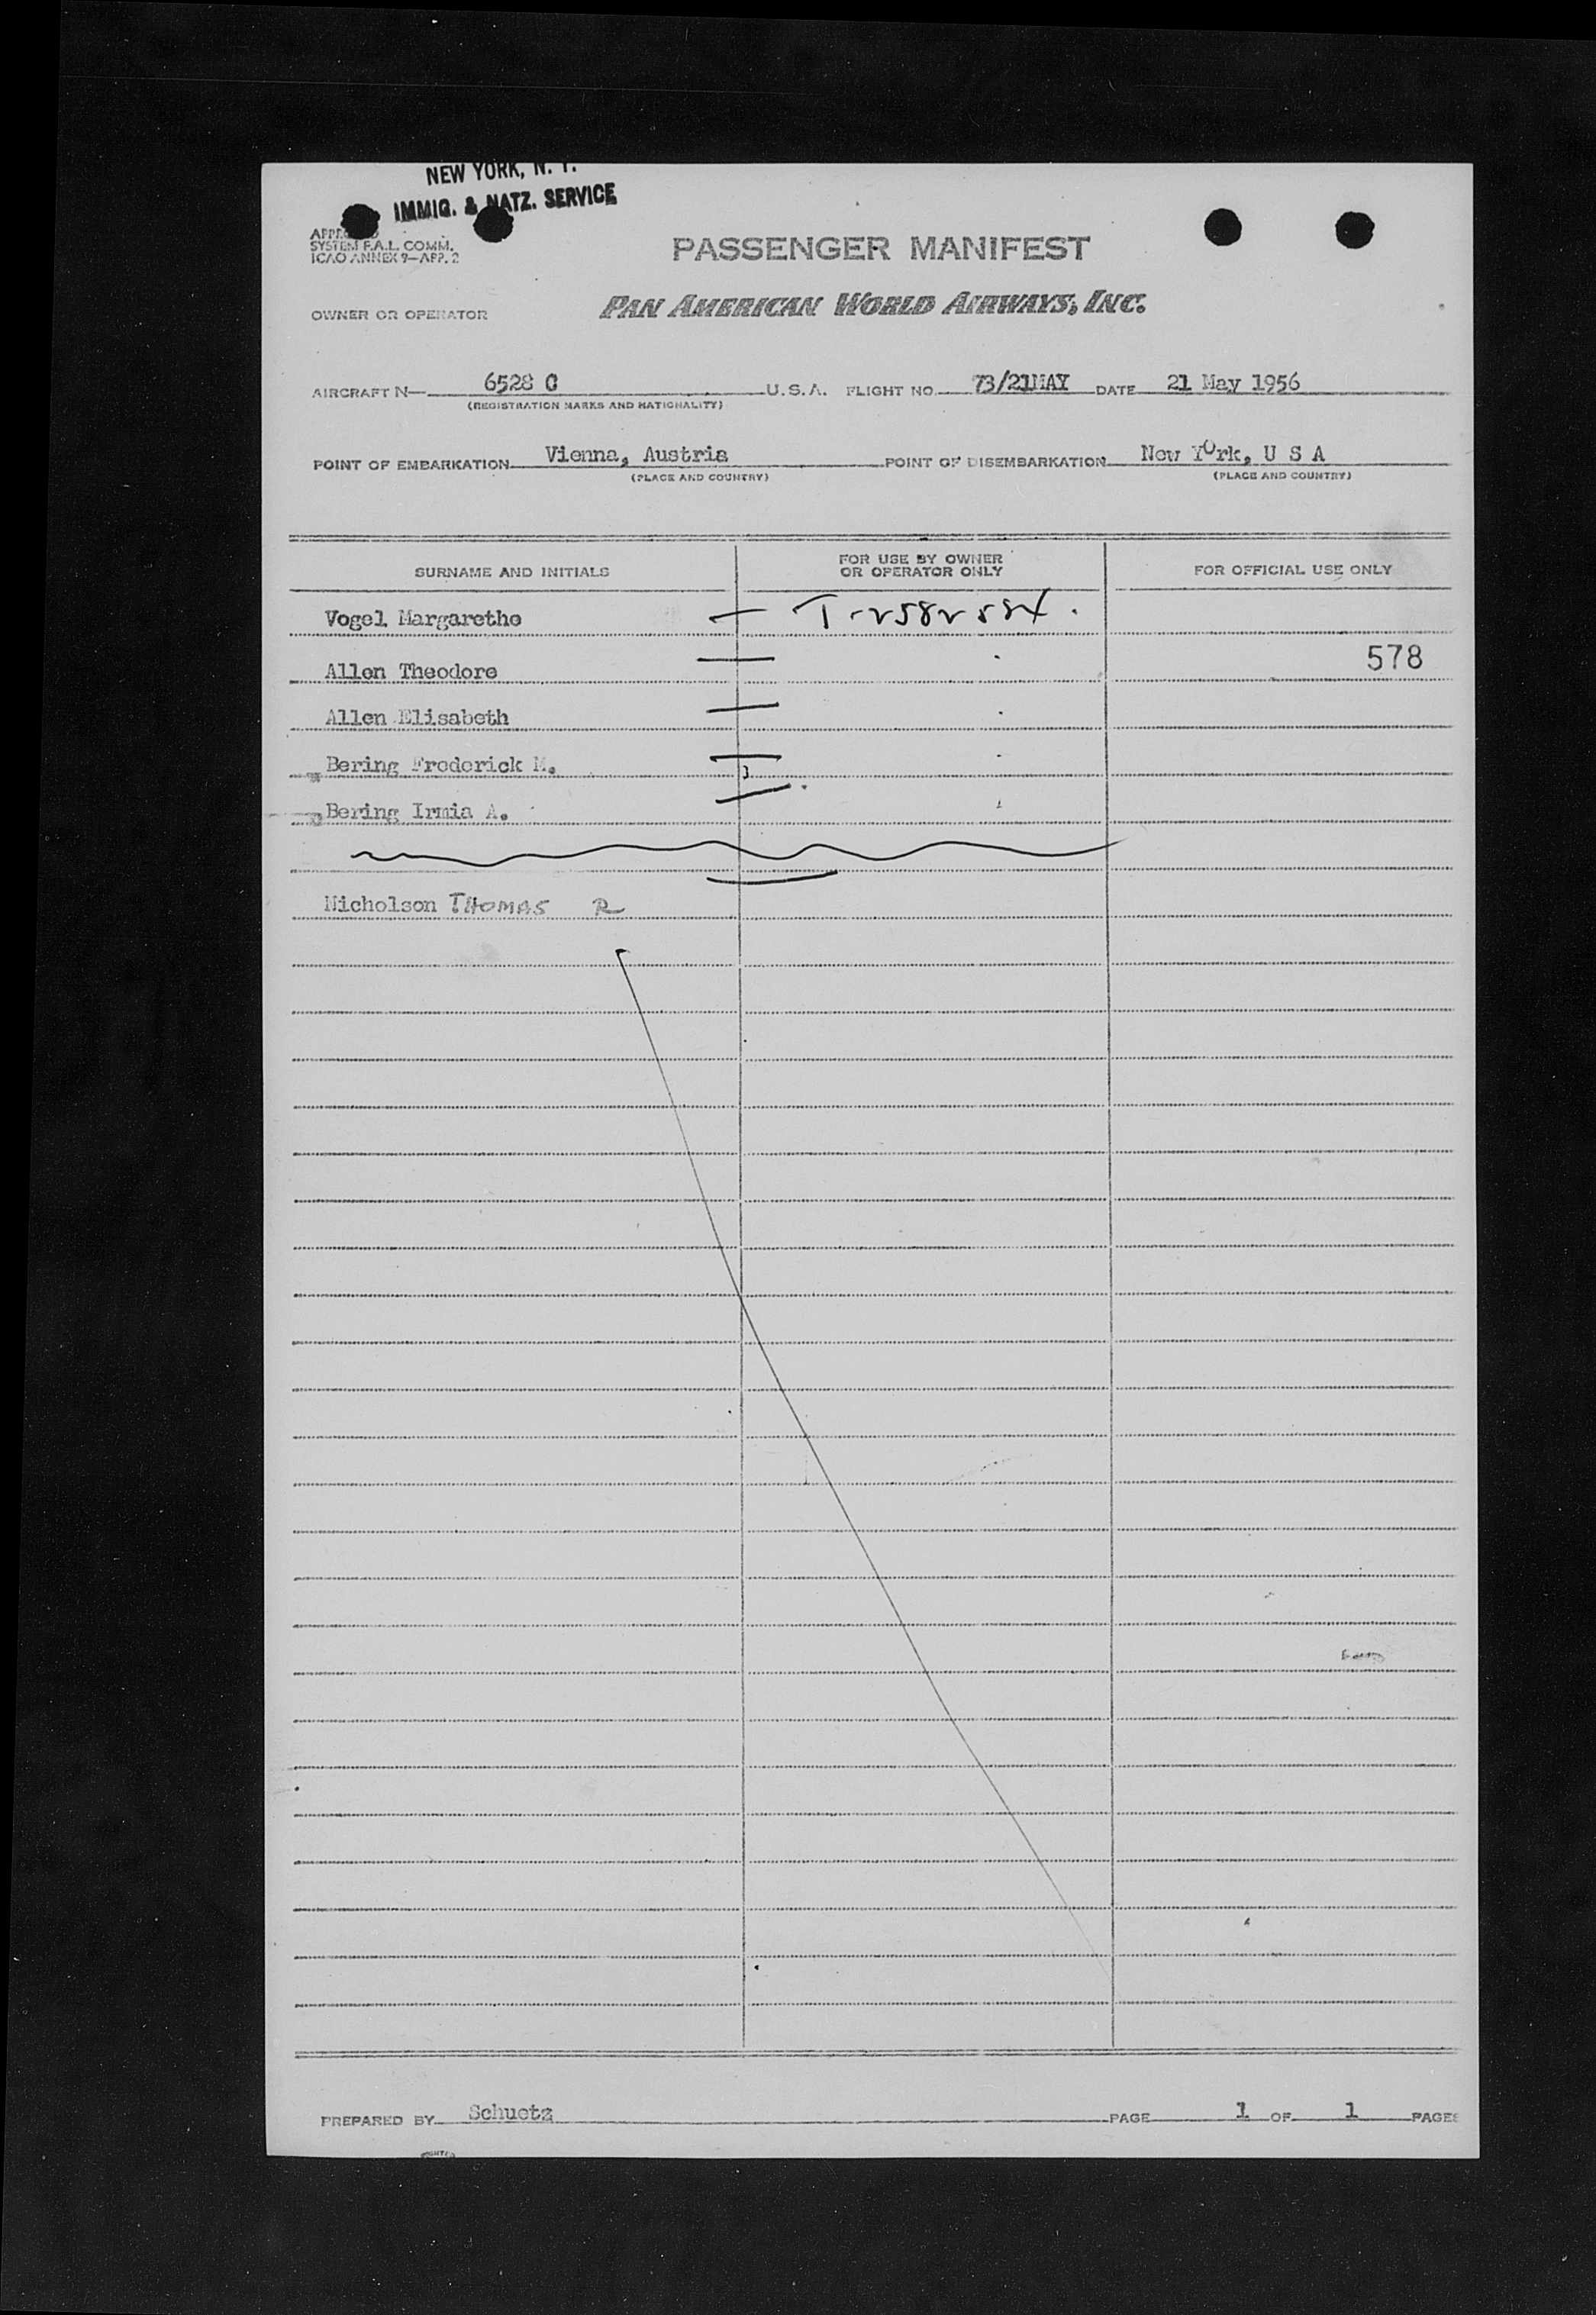 NEW YORK, N. Y.
IMMIG. & NATZ. SERVICE
SYSTEM F.A.L. COMM.
ICAO ANNEX 9—APP. 2
PASSENGER MANIFEST
OWNER OR OPERATOR PAN AMERICAN WORLD AIRWAYS, INC.
AIRCRAFT N— 6528 C U.S.A. FLIGHT NO. 73/21MAY DATE 21 May 1956
(REGISTRATION MARKS AND NATIONALITY)
POINT OF EMBARKATION Vienna, Austria POINT OF DISEMBARKATION New YOrk, U S A
(PLACE AND COUNTRY) (PLACE AND COUNTRY)
SURNAME AND INITIALS FOR USE BY OWNER OR OPERATOR ONLY FOR OFFICIAL USE ONLY
Vogel Margarethe
Allen Theodore 578
Allen Elisabeth
Bering Frederick M.
Bering Irmia A.
Nicholson THOMAS R
PREPARED BY Schuetz PAGE 1 OF 1 PAGES